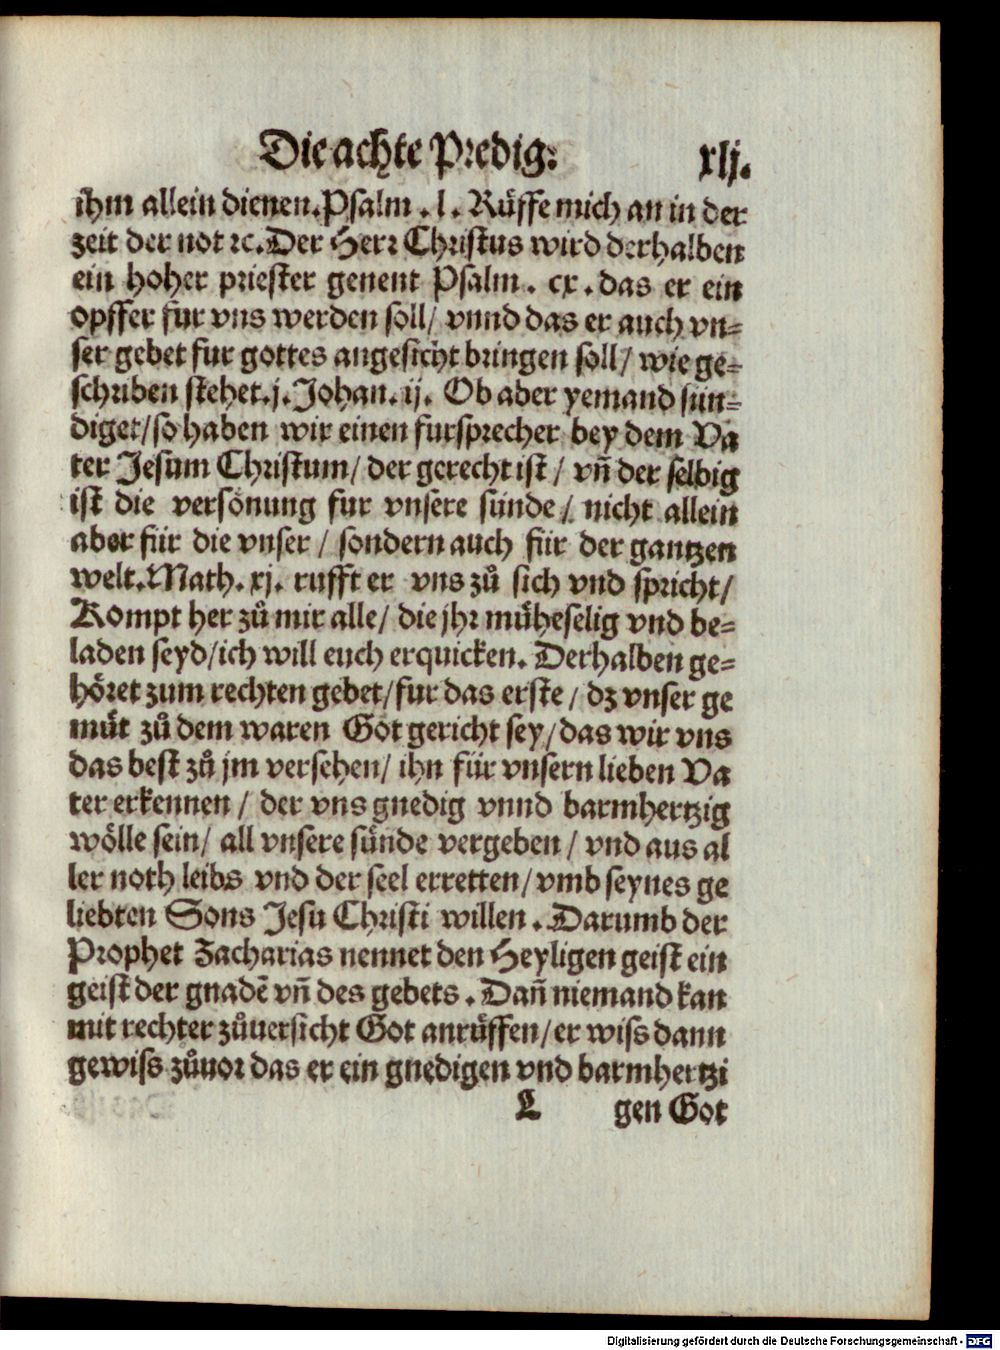 Die achte Predig:
xlj.
ihm allein dienen. Psalm . l . Rüffe mich an in der
zeit der not ꝛc. Der Herr Christus wird derhalben
ein hoher priester genent Psalm . cx . das er ein
opffer fur vns werden soll/ vnnd das er auch vn=
ser gebet fur gottes angesicht bringen soll/ wie ge=
schriben stehet. j. Johan. ij. Ob aber yemand sün=
diget/ so haben wir einen fursprecher bey dem Va
ter Jesum Christum/ der gerecht ist/ vn̄ der selbig
ist die versönung fur vnsere sünde/ nicht allein
aber für die vnser/ sondern auch für der gantzen
welt. Math. xj. rufft er vns zů sich vnd spricht/
Kompt her zů mir alle/ die jhr müheselig vnd be=
laden seyd/ ich will euch erquicken. Derhalben ge=
höret zum rechten gebet/ fur das erste/ dz vnser ge
müt zů dem waren Got gericht sey/ das wir vns
das best zů jm versehen/ ihn für vnsern lieben Va
ter erkennen/ der vns gnedig vnnd barmhertzig
wölle sein/ all vnsere sünde vergeben/ vnd aus al
ler noth leibs vnd der seel erretten/ vmb seynes ge
liebten Sons Jesu Christi willen. Darumb der
Prophet Zacharias nennet den Heyligen geist ein
geist der gnadē vn̄ des gebets. Dan̄ niemand kan
mit rechter zůuersicht Got anrüffen/ er wiss dann
gewiss zůuor das er ein gnedigen vnd barmhertzi
L gen Got
Digitalisierung gefördert durch die Deutsche Forschungsgemeinschaft - DFG